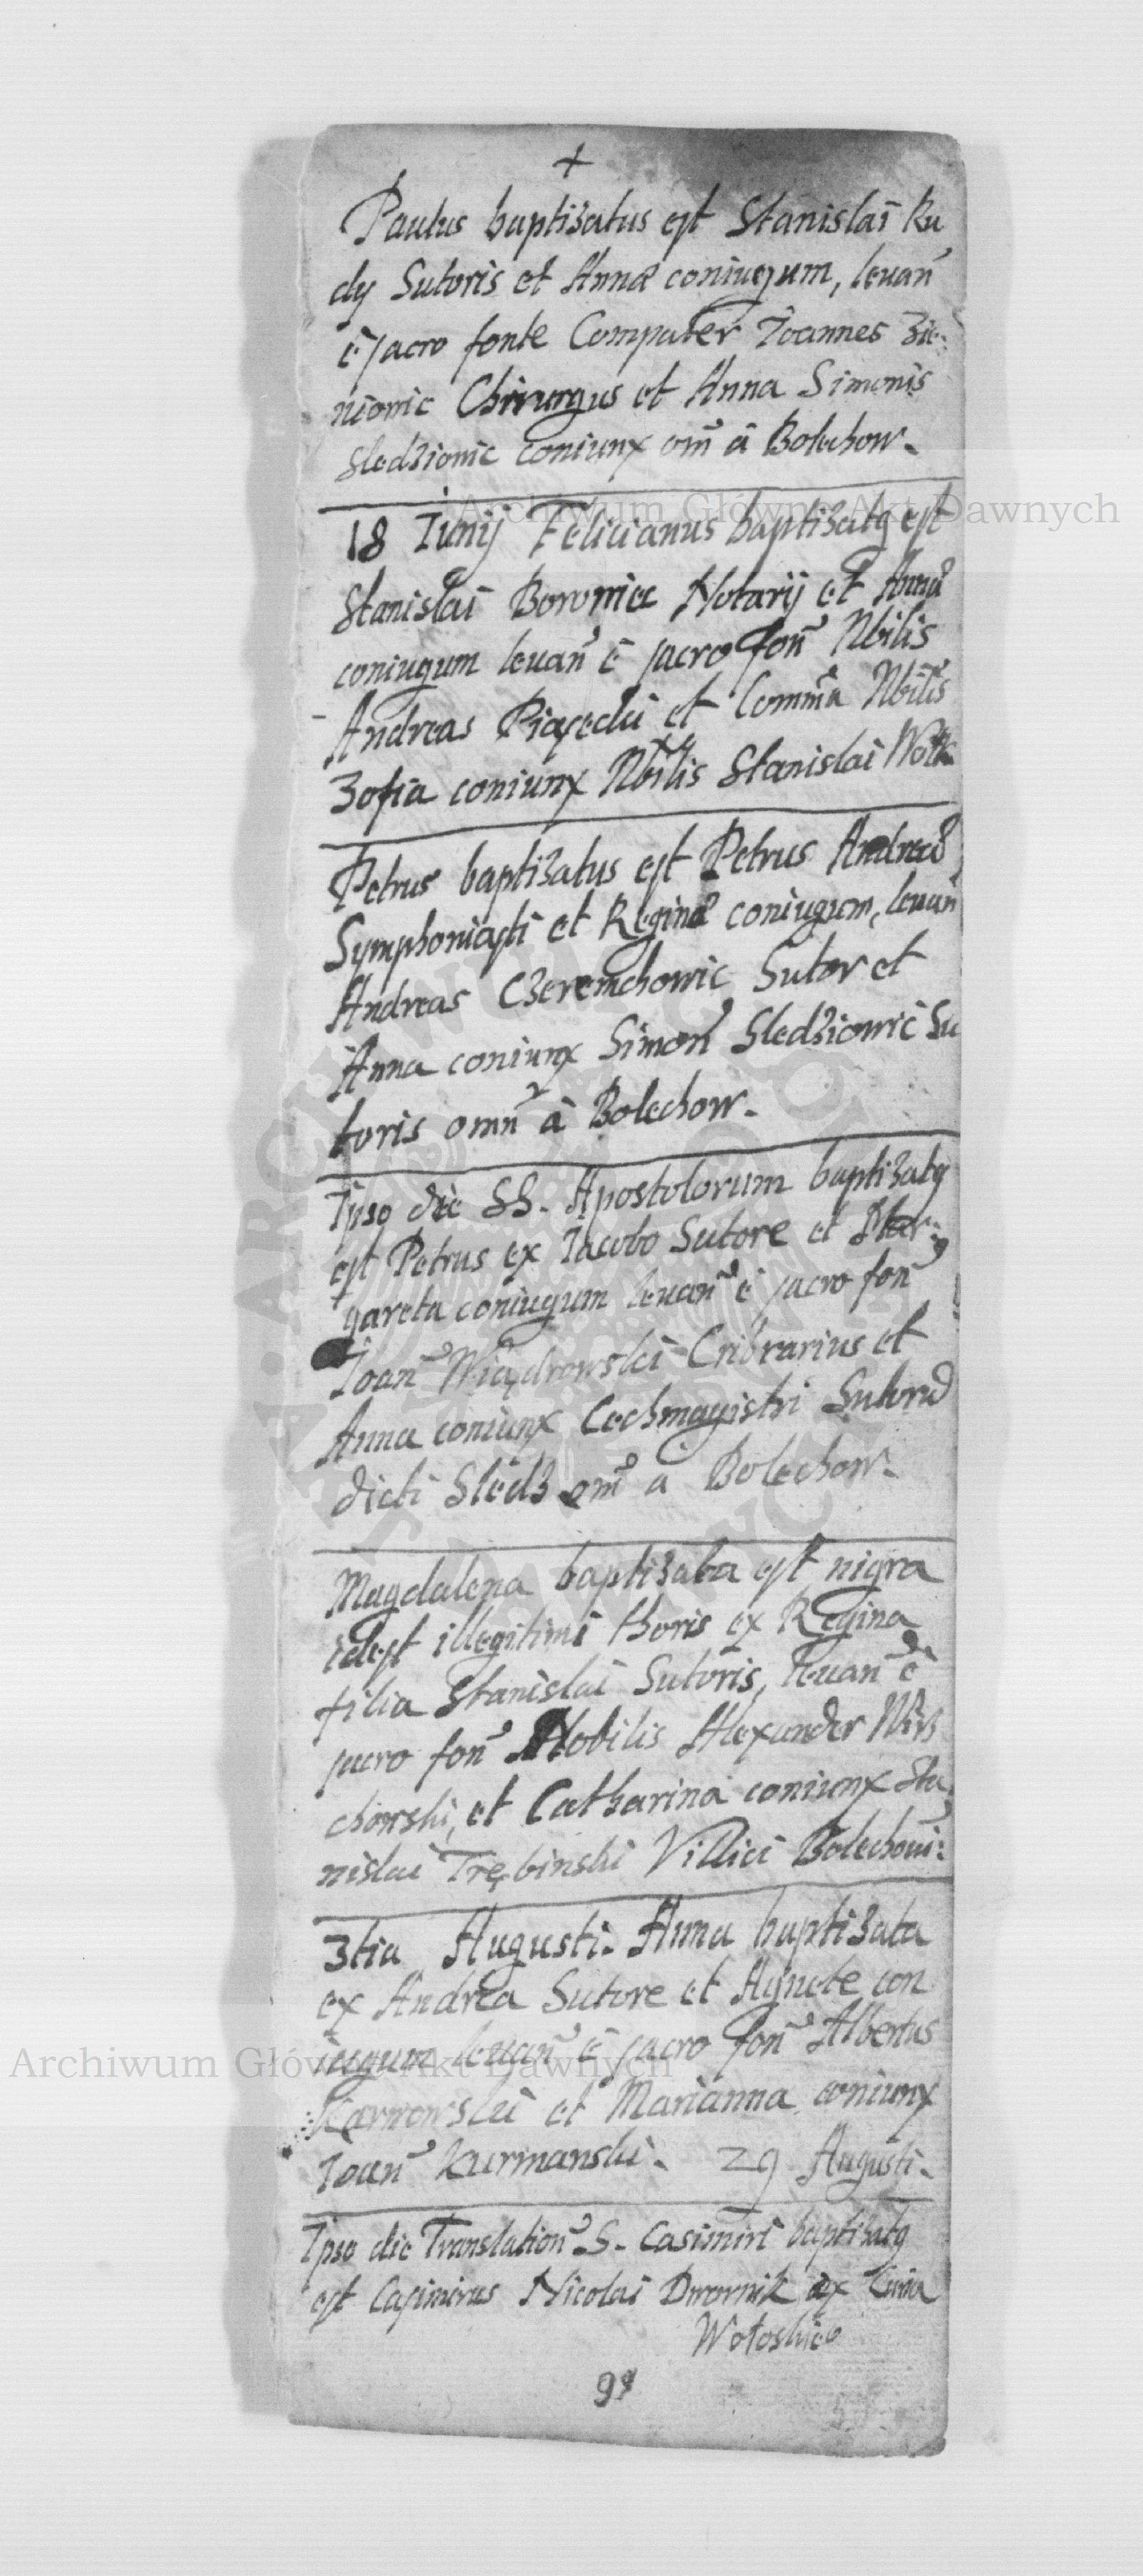 +
Paulus baptizatus est Stanislai Ku
dy Sutoris et Annæ coniugum, leuan͂
è sacro fonte Compater Joannes Zie-
niowic Chirurgus et Anna Simonis
Sledziowic coniunx om͂ à Bolechow.
18 Junij Felicianus baptizatq est
Stanislai Borowiec Notarij et Annæ
coniugum leuan͂ è sacro fon͂ Nbilis
Andreas Piasecki et Comm͂a Nbilis
Zofia coniunx Nbilis Stanislai Wolk
Petrus baptizatus est Petrus Andreæ
Symphoniasti et Reginæ coniugum, leuan͂
Andreas Czeremchowic Sutor et
Anna coniunx Simon͂ Sledziowic Su
toris omn͂ à Bolechow.
Ipso die SS. Apostolorum baptizatq
est Petrus ex Jacobo Sutore et Mar-
gareta coniugum leuan͂ è sacro fon͂
Joan͂ Cribrarius et
Anna coniunx Cechmagistri Sutorũ
dicti Sledz om͂ a Bolechow.
Magdalena baptizata est nigra
idest illegitimi thoris ex Regina
filia Stanislai Sutoris, leuan͂ è
sacro fon͂ Nobilis Alexander
chowski, et Catharina coniunx Sta
nislai Trębinski Villici Bolechoui:
3tia Augusti. Anna baptizata
ex Andrea Sutore et Agnete con
iugum leuan͂ è sacro fon͂ Albertus
Karwowski et Marianna coniunx
Joan͂ Kurmanski. 29 Augusti.
Ipso die Translation͂ S. Casimiri baptizatq
est Casimirus Nicolai Dwornik ex Curia
Wołoskie
Archiwum Główne Akt Dawnych
Archiwum Główne Akt Dawnych